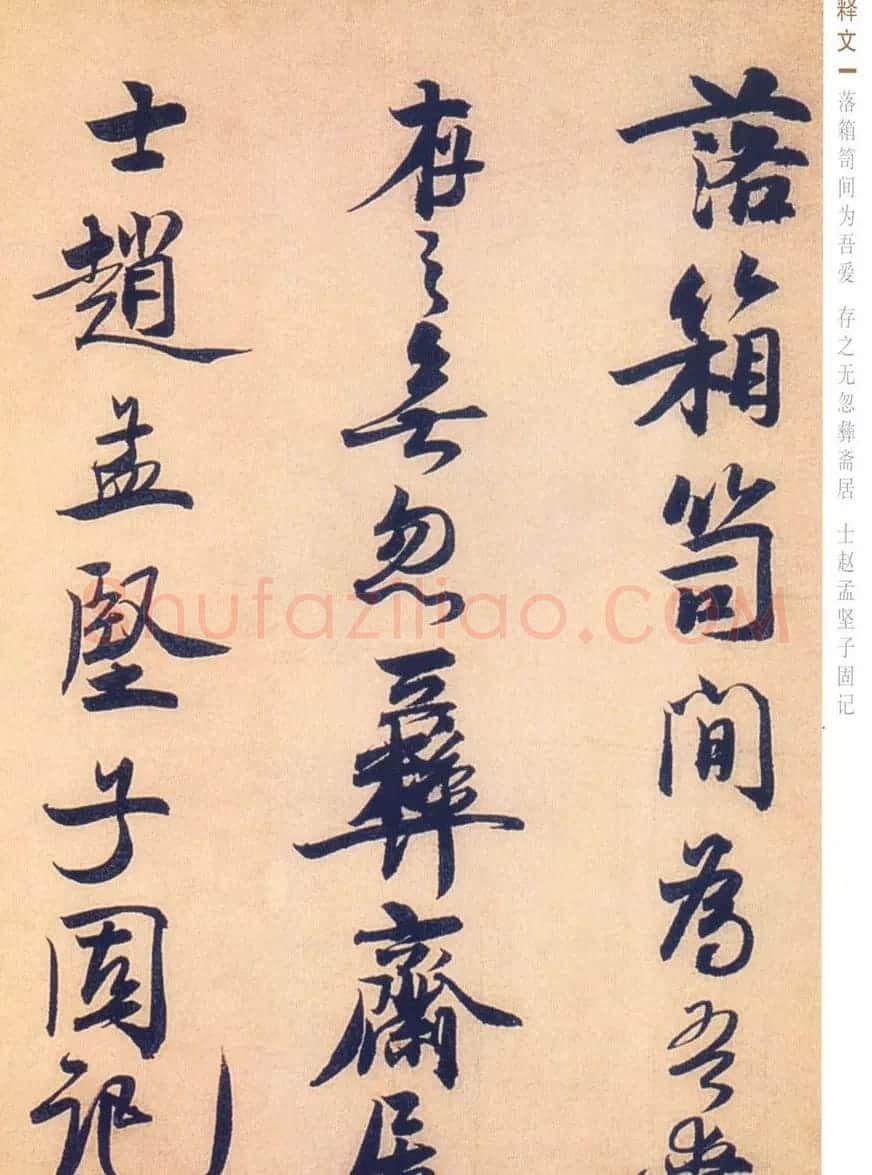 落箱笥間為吾愛
存之無忽彝齋居
士趙孟堅子固記
释文
落箱笥间为吾爱 存之无忽彝斋居 士赵孟坚子固记
shufaziliao.COM